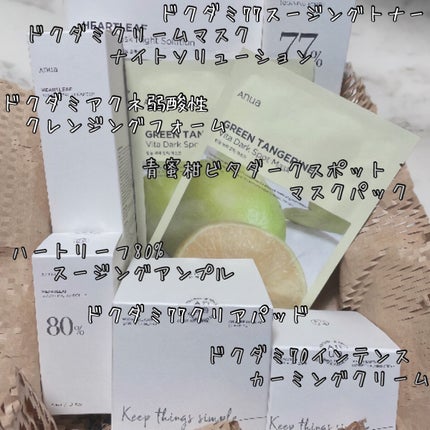 ドクダミ77スージングトナー
ドクダミクリームマスク
ナイトソリューション
HEARTLEAF
77%
Anua
HEARTLEAF
ドクダミアクネ弱酸性
クレンジングフォーム
Anua
GREEN TANGERINE
Vita Dark Spot Mask
GREEN TANG
Vita Dark Spo
青蜜柑ビタダークスポット
マスクパック
ハートリーフ80%
スージングアンプル
80%
ドクダミ77クリアパッド
ドクダミ70インテンス
カーミングクリーム
Keep things simple
Keep things sim